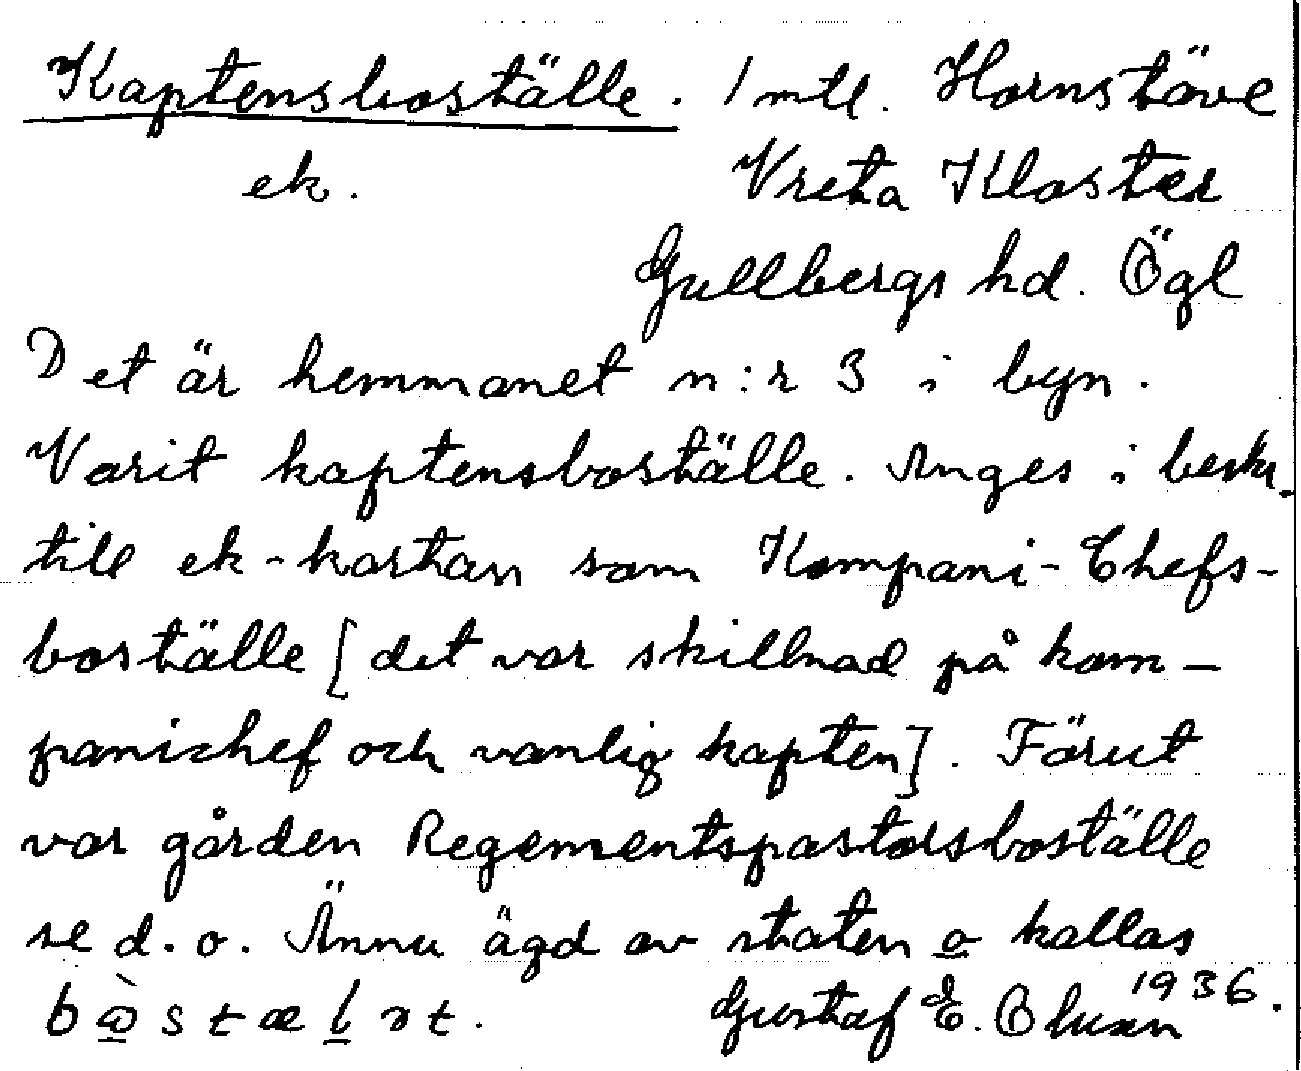 Kaptensboställe. 1 mtl. Hornstäve
ek. Vreta Kloster
Gullbergs hd. Ögl
Det är hemmanet n:r 3 i byn.
Varit kaptensboställe. Anges i beskr.
till ek-kartan som Kompani-Chefs-
boställe [det var skillnad på kom-
panichef och vanlig kapten]. Förut
var gården Regementspastorsboställe
se d.o. Ännu ägd av staten o kallas
Gustaf E. Olusén 1936.